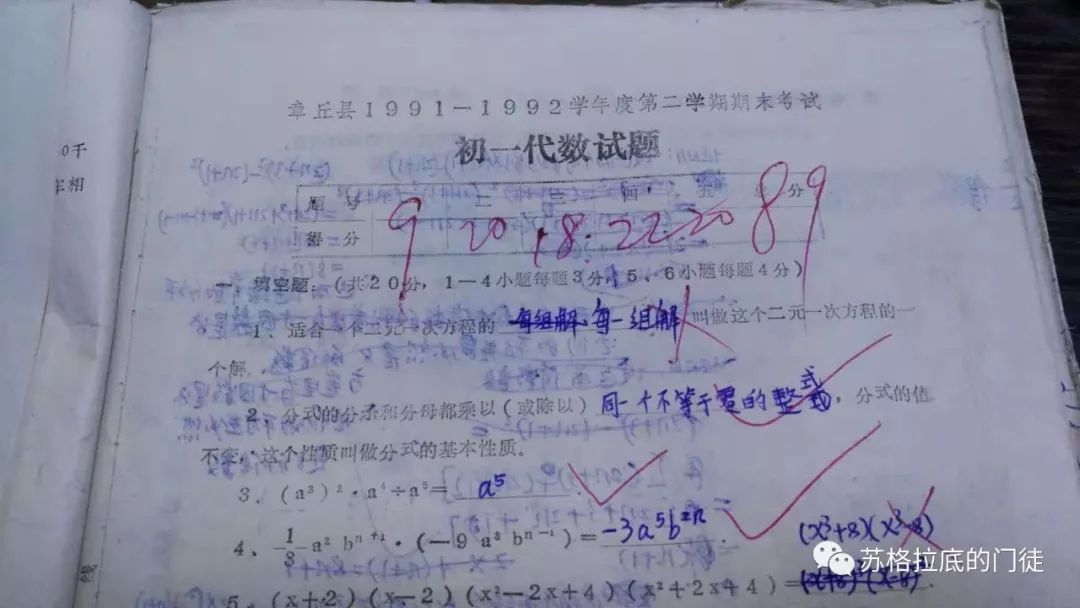 章丘县1991—1992学年度第二学期期末考试
初一代数试题
0千
车相
题 号 一 二 三 四 五 总 分
得 分 9 20 18 22 20 89
一、填空题:(共20分,1—4小题每题3分,5、6小题每题4分)
1、适合一个二元一次方程的 每组解、每一组解 叫做这个二元一次方程的一
个解。
2、分式的分子和分母都乘以(或除以)同一个不等于零的整式,分式的值
不变,这个性质叫做分式的基本性质。
3、(a³)²·a⁴÷a⁵= a⁵
4、1/3 a² bⁿ⁺¹·(-9 a³ bⁿ⁻¹)= -3a⁵b²ⁿ .
(x³+8)(x³-8)
5、(x+2)(x-2)(x²-2x+4)(x²+2x+4)= .
线
苏格拉底的门徒